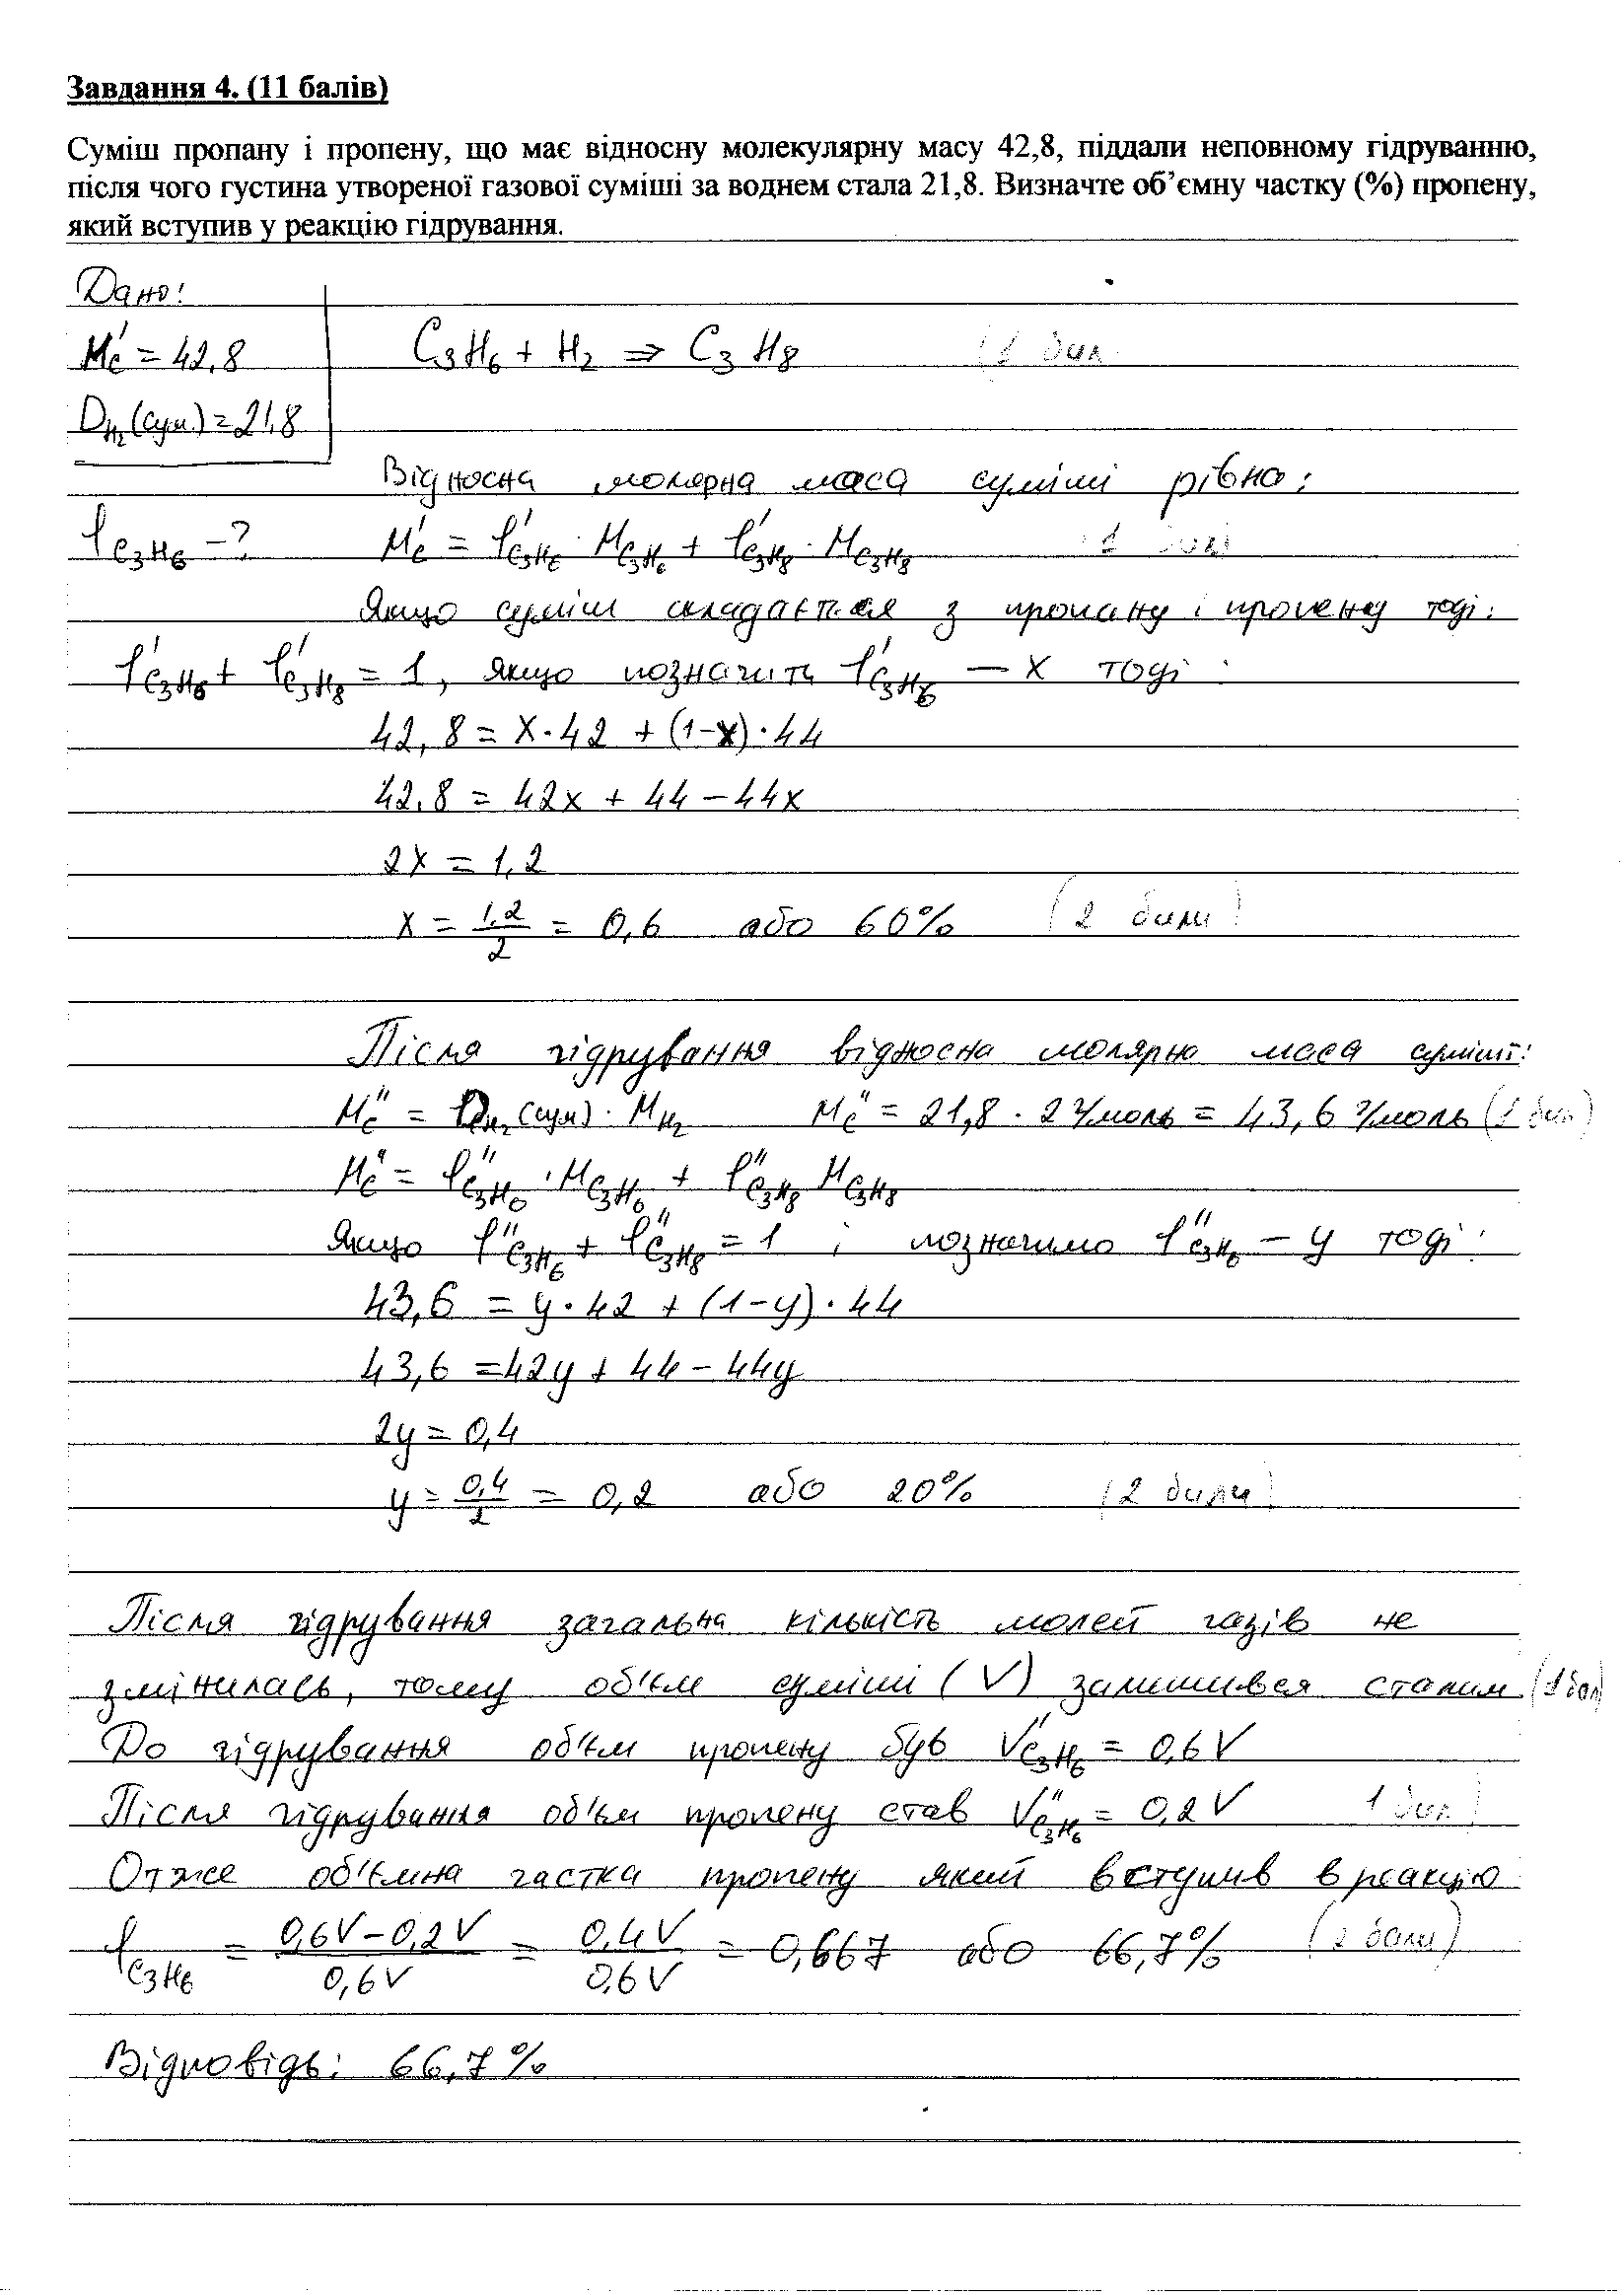 Завдання 4. (11 балів)
Суміш пропану і пропену, що має відносну молекулярну масу 42,8, піддали неповному гідруванню,
після чого густина утвореної газової суміші за воднем стала 21,8. Визначте об’ємну частку (%) пропену,
який вступив у реакцію гідрування.
Дано:
M'c = 42,8
C3H6 + H2 ⇒ C3H8 (1 бал
DH2 (сум.) = 21,8
Відносна молярна маса суміші рівна:
φC3H6 - ?
M'c = φ'C3H6 · MC3H6 + φ'C3H8 · MC3H8 1 бал
Якщо суміш складається з пропану і пропену тоді:
φ'C3H6 + φ'C3H8 = 1, якщо позначить φ'C3H6 — x тоді:
42,8 = x · 42 + (1-x) · 44
42,8 = 42x + 44 - 44x
2x = 1,2
x = 1,2/2 = 0,6 або 60% (2 бали)
Після гідрування відносна молярна маса суміші:
M''c = DH2 (сум) · MH2 M''c = 21,8 · 2 г/моль = 43,6 г/моль (1 бал)
M''c = φ''C3H6 · MC3H6 + φ''C3H8 MC3H8
Якщо φ''C3H6 + φ''C3H8 = 1 і позначимо φ''C3H6 — y тоді:
43,6 = y · 42 + (1-y) · 44
43,6 = 42y + 44 - 44y
2y = 0,4
y = 0,4/2 = 0,2 або 20% (2 бали)
Після гідрування загальна кількість молей газів не
змінилась, тому об'єм суміші (V) залишився сталим (1 бал)
До гідрування об'єм пропену був V''C3H6 = 0,6 V
Після гідрування об'єм пропену став V''C3H6 = 0,2 V 1 бал)
Отже об'ємна частка пропену який вступив в реакцію
φC3H6 = 0,6V - 0,2V/0,6V = 0,4V/0,6V = 0,667 або 66,7% (2 бали)
Відповідь: 66,7%